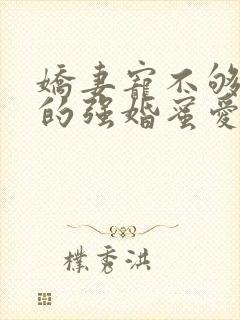 嬌妻寵不够
的强婚蜜愛
樸秀洪